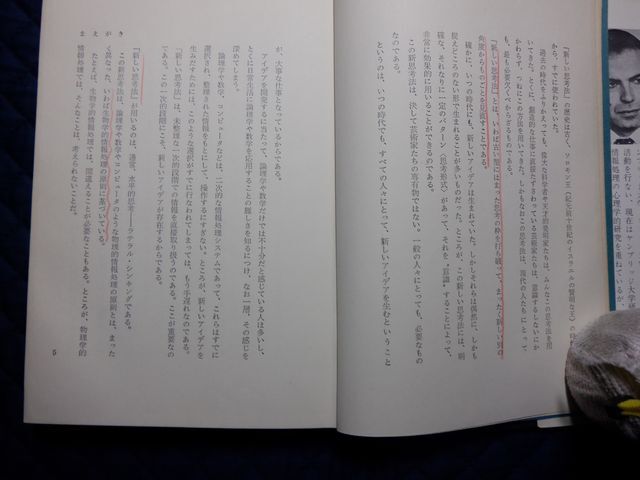 「新しい思考法」の歴史は古く、ソロモン王（紀元前十世紀のイスラエルの賢明な王）の時
から、すでに使われていた。
過去の時代をふりかえっても、偉大な科学者や天才的発見家たちは、みんなこの思考を用
いてきた。とくに、創造的な仕事に直接たずさわっている芸術家たちは、意識するしないにか
かわらず、つねにこの方法を用いてきた。しかもなおこの思考法は、現代の人たちにとって
も、最も必要欠くべからざるものである。
「新しい思考法」とは、いわば古い型にはまった思考の枠を打ち破って、まったく新しい別の
角度からものごとを見直すことである。
確かに、いつの時代にも、新しいアイデアは生まれていた。しかしそれらは偶然に、しかも
捉えどころのない形で生まれることが多いものだった。ところが、この新しい思考法には、明
確な、それなりに一定のパターン（思考形式）があって、それを、「意識」することによって、
非常に効果的に用いることができるのである。
この新思考法は、決して芸術家たちの専有物ではない。一般の人々にとっても、必要なもの
なのである。
というのは、いつの時代でも、すべての人々にとって、新しいアイデアを生むということ
が、大事な仕事となっているからである。
アイデアを開発するに当たって、論理学や数学だけでは不十分だと感じている人は多いし、
とくに日常生活に論理学や数学を応用することの難しさを知るにつけ、なお一層、その感じを
深めてしまう。
論理学や数学、コンピュータなどは、二次的な情報処理システムであって、これらはすでに
選択され、整理された情報をもとにして、操作するにすぎない。ところが、新しいアイデアを
生みだすためには、このような選択がすでに行なわれてしまっては、もう手遅れなのである。
「新しい思考法」は、未整理な一次的段階での情報を直接取り扱うのである。ここが重要なの
だ。この一次的な段階にこそ、新しいアイデアが存在するからである。
「新しい思考法」が用いるのは、通常、水平的思考—ラテラル・シンキングである。
この新思考法は、論理学や数学やコンピュータのような物理的情報処理の原則とは、まった
く異なった、いわば生物学的情報処理の原則に基づいている。
たとえば、生物学的情報処理では、間違えることが必要なこともある。ところが、物理学的
情報処理では、そんなことは、考えられないことだ。
5
活動を行ない、現在はケンブリッジ大学
情報処理の心理学的研究を重ねている。